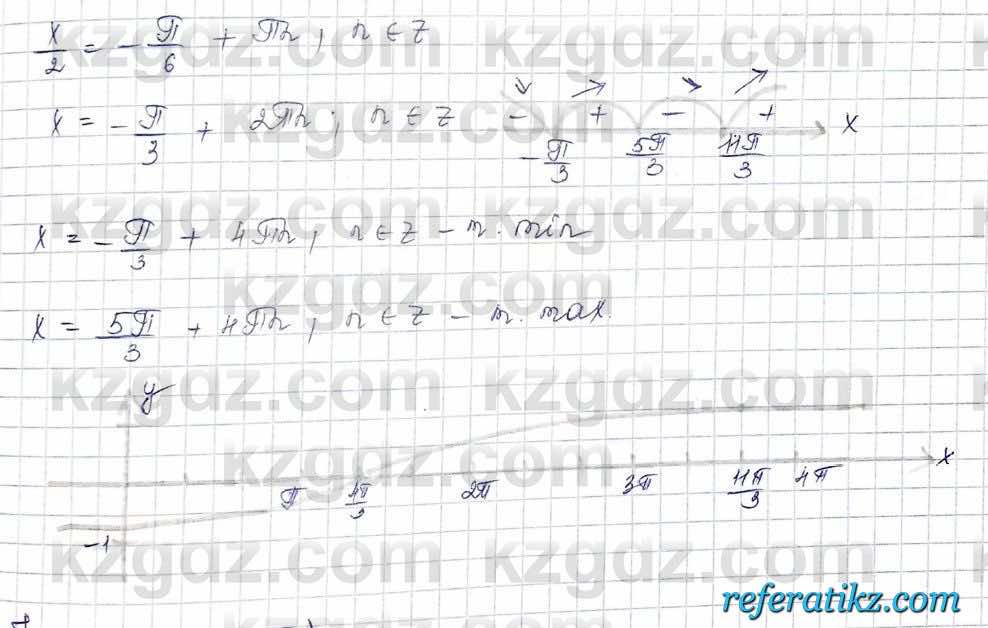 x/2 = -π/6 + πn, n ∈ Z
x = -π/3 + 2πn; n ∈ Z
- + - + x
-π/3 5π/3 11π/3
x = -π/3 + 4πn, n ∈ Z - т. min
x = 5π/3 + 4πn, n ∈ Z - т. max.
y
x
π 4π/3 2π 3π 11π/3 4π
-1
kzgdz.com
referatikz.com